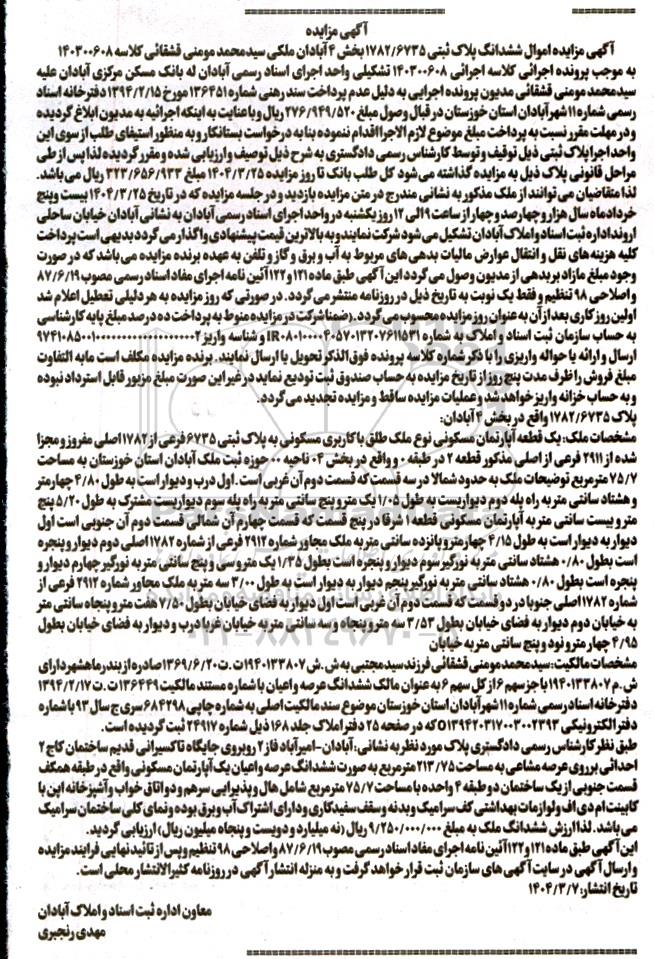 آگهی مزایده
آگهی مزایده اموال ششدانگ پلاک ثبتی ۱۷۸۲/۶۷۳۵ بخش ۴ آبادان ملکی سیدمحمد مومنی قشقائی کلاسه ۱۴۰۳۰۰۶۰۸
به موجب پرونده اجرائی کلاسه اجرائی ۱۴۰۳۰۰۶۰۸ تشکیلی واحد اجرای اسناد رسمی آبادان له بانک مسکن مرکزی آبادان علیه
سیدمحمد مومنی قشقائی مدیون پرونده اجرایی به دلیل عدم پرداخت سند رهنی شماره ۱۳۶۴۵۱ مورخ ۱۳۹۴/۲/۱۵ دفترخانه اسناد
رسمی شماره ۱۱ شهرآبادان استان خوزستان در قبال وصول مبلغ ۲۷۶/۹۴۹/۵۲۰ ریال و با عنایت به اینکه اجرائیه به مدیون ابلاغ گردیده
و در مهلت مقرر نسبت به پرداخت مبلغ موضوع لازم الاجرا اقدام ننموده بنا به درخواست بستانکار و به منظور استیفای طلب از سوی این
واحد اجرا پلاک ثبتی ذیل توقیف و توسط کارشناس رسمی دادگستری به شرح ذیل توصیف و ارزیابی شده و مقرر گردیده لذا پس از طی
مراحل قانونی پلاک ذیل به مزایده گذاشته می‌شود کل طلب بانک تا روز مزایده ۱۴۰۴/۳/۲۵ مبلغ ۳۲۳/۶۵۶/۹۳۳ ریال می باشد.
لذا متقاضیان می‌توانند از ملک مذکور به نشانی مندرج در متن مزایده بازدید و در جلسه مزایده که در تاریخ ۱۴۰۴/۳/۲۵ بیست و پنج
خرداد ماه سال هزار و چهارصد و چهار از ساعت ۹ الی ۱۲ روز یکشنبه در واحد اجرای اسناد رسمی آبادان به نشانی آبادان خیابان ساحلی
اروند اداره ثبت اسناد و املاک آبادان تشکیل می شود شرکت نمایند و به بالاترین قیمت پیشنهادی واگذار می گردد بدیهی است پرداخت
کلیه هزینه های نقل و انتقال عوارض مالیات بدهی های مربوط به آب و برق و گاز و تلفن به عهده برنده مزایده می باشد که در صورت
وجود مبلغ مازاد بر بدهی از مدیون وصول می گردد این آگهی طبق ماده ۱۲۱ و ۱۲۲ آئین نامه اجرای مفاد اسناد رسمی مصوب ۸۷/۶/۱۹
و اصلاحی ۹۸ تنظیم و فقط یک نوبت به تاریخ ذیل در روزنامه منتشر می گردد. در صورتی که روز مزایده به هر دلیلی تعطیل اعلام شد
اولین روز کاری بعد از آن به عنوان روز مزایده محسوب می گردد. (ضمنا شرکت در مزایده منوط به پرداخت ده درصد مبلغ پایه کارشناسی
به حساب سازمان ثبت اسناد و املاک به شماره
ارسال و ارائه یا حواله واریزی را با ذکر شماره کلاسه پرونده فوق الذکر تحویل یا ارسال نمایند. برنده مزایده مکلف است مابه التفاوت
مبلغ فروش را ظرف مدت پنج روز از تاریخ مزایده به حساب صندوق ثبت تودیع نماید در غیر این صورت مبلغ مزبور قابل استرداد نبوده
و به حساب خزانه واریز خواهد شد و عملیات مزایده ساقط و مزایده تجدید می گردد.
پلاک ۱۷۸۲/۶۷۳۵ واقع در بخش ۴ آبادان:
مشخصات ملک: یک قطعه آپارتمان مسکونی نوع ملک طلق با کاربری مسکونی به پلاک ثبتی ۶۷۳۵ فرعی از ۱۷۸۲ اصلی مفروز و مجزا
شده از ۲۹۱۱ فرعی از اصلی مذکور قطعه ۲ در طبقه ۰ و واقع در بخش ۰۴ ناحیه ۰۰ حوزه ثبت ملک آبادان استان خوزستان به مساحت
۷۵/۷ مترمربع توضیحات ملک به حدود شمالا در سه قسمت که قسمت دوم آن غربی است. اول درب و دیوار است به طول ۴/۸۰ چهار متر
و هشتاد سانتی متر به راه پله دوم دیواریست به طول ۱/۰۵ یک متر و پنج سانتی متر به راه پله سوم دیواریست مشترک به طول ۵/۲۰ پنج
متر و بیست سانتی متر به آپارتمان مسکونی قطعه ۱ شرقا در پنج قسمت که قسمت چهارم آن شمالی قسمت دوم آن جنوبی است اول
دیوار به دیوار است به طول ۴/۱۵ چهار متر و پانزده سانتی متر به ملک مجاور شماره ۲۹۱۲ فرعی از شماره ۱۷۸۲ اصلی دوم دیوار و پنجره
است بطول ۰/۸۰ هشتاد سانتی متر به نورگیر سوم دیوار و پنجره است بطول ۱/۳۵ یک متر و سی و پنج سانتی متر به نورگیر چهارم دیوار و
پنجره است بطول ۰/۸۰ هشتاد سانتی متر به نورگیر پنجم دیوار به دیوار است به طول ۳/۰۰ سه متر به ملک مجاور شماره ۲۹۱۲ فرعی از
شماره ۱۷۸۲ اصلی جنوبا در دو قسمت که قسمت دوم آن غربی است اول دیوار به فضای خیابان بطول ۷/۵۰ هفت متر و پنجاه سانتی متر
به خیابان دوم دیوار به فضای خیابان بطول ۳/۵۳ سه متر و پنجاه و سه سانتی متر به خیابان غربا درب و دیوار به فضای خیابان بطول
۴/۹۵ چهار متر و نود و پنج سانتی متر به خیابان
مشخصات مالکیت: سیدمحمد مومنی قشقائی فرزند سید مجتبی به ش.ش ۱۹۴۰۱۳۳۸۰۷ ت.ت ۱۳۶۹/۶/۲۰ صادره از بندر ماهشهر دارای
ش.م ۱۹۴۰۱۳۳۸۰۷ با جز سهم ۶ از کل سهم ۶ به عنوان مالک ششدانگ عرصه و اعیان با شماره مستند مالکیت ۱۳۶۴۴۹ ت.ت ۱۳۹۴/۲/۱۷
دفترخانه اسناد رسمی شماره ۱۱ شهر آبادان استان خوزستان موضوع سند مالکیت اصلی به شماره چاپی ۶۸۴۲۹۸ سری ج سال ۹۳ با شماره
دفتر الکترونیکی ۱۳۹۴۲۰۳۱۷۰۰۳۰۰۲۳۹۳ که در صفحه ۲۵ دفتر املاک جلد ۱۶۸ ذیل شماره ۲۴۹۱۷ ثبت گردیده است.
طبق نظر کارشناس رسمی دادگستری پلاک مورد نظر به نشانی: آبادان-امیرآباد فاز ۲ روبروی جایگاه تاکسیرانی قدیم ساختمان کاج ۲
احداثی بر روی عرصه مشاعی به مساحت ۲۱۳/۷۵ مترمربع به صورت ششدانگ عرصه واعیان یک آپارتمان مسکونی واقع در طبقه همکف
قسمت جنوبی از یک ساختمان دو طبقه ۴ واحده با مساحت ۷۵/۷ مترمربع شامل هال و پذیرایی سرهم و دو اتاق خواب و آشپزخانه این با
کابینت ام دی اف و لوازمات بهداشتی کف سرامیک و بدنه و سقف سفیدکاری و دارای اشتراک آب و برق بوده و نمای کلی ساختمان سرامیک
می باشد. لذا ارزش ششدانگ ملک به مبلغ ۹/۲۵۰/۰۰۰/۰۰۰ ریال (نه میلیارد و دویست و پنجاه میلیون ریال) ارزیابی گردید.
این آگهی طبق ماده ۱۲۱ و ۱۲۲ آئین نامه اجرای مفاد اسناد رسمی مصوب ۸۷/۶/۱۹ و اصلاحی ۹۸ تنظیم و پس از تائید نهایی فرایند مزایده
و ارسال آگهی در سایت آگهی های سازمان ثبت قرار خواهد گرفت و به منزله انتشار آگهی در روزنامه کثیرالانتشار محلی است.
تاریخ انتشار: ۱۴۰۴/۳/۷
معاون اداره ثبت اسناد و املاک آبادان
مهدی رنجبری